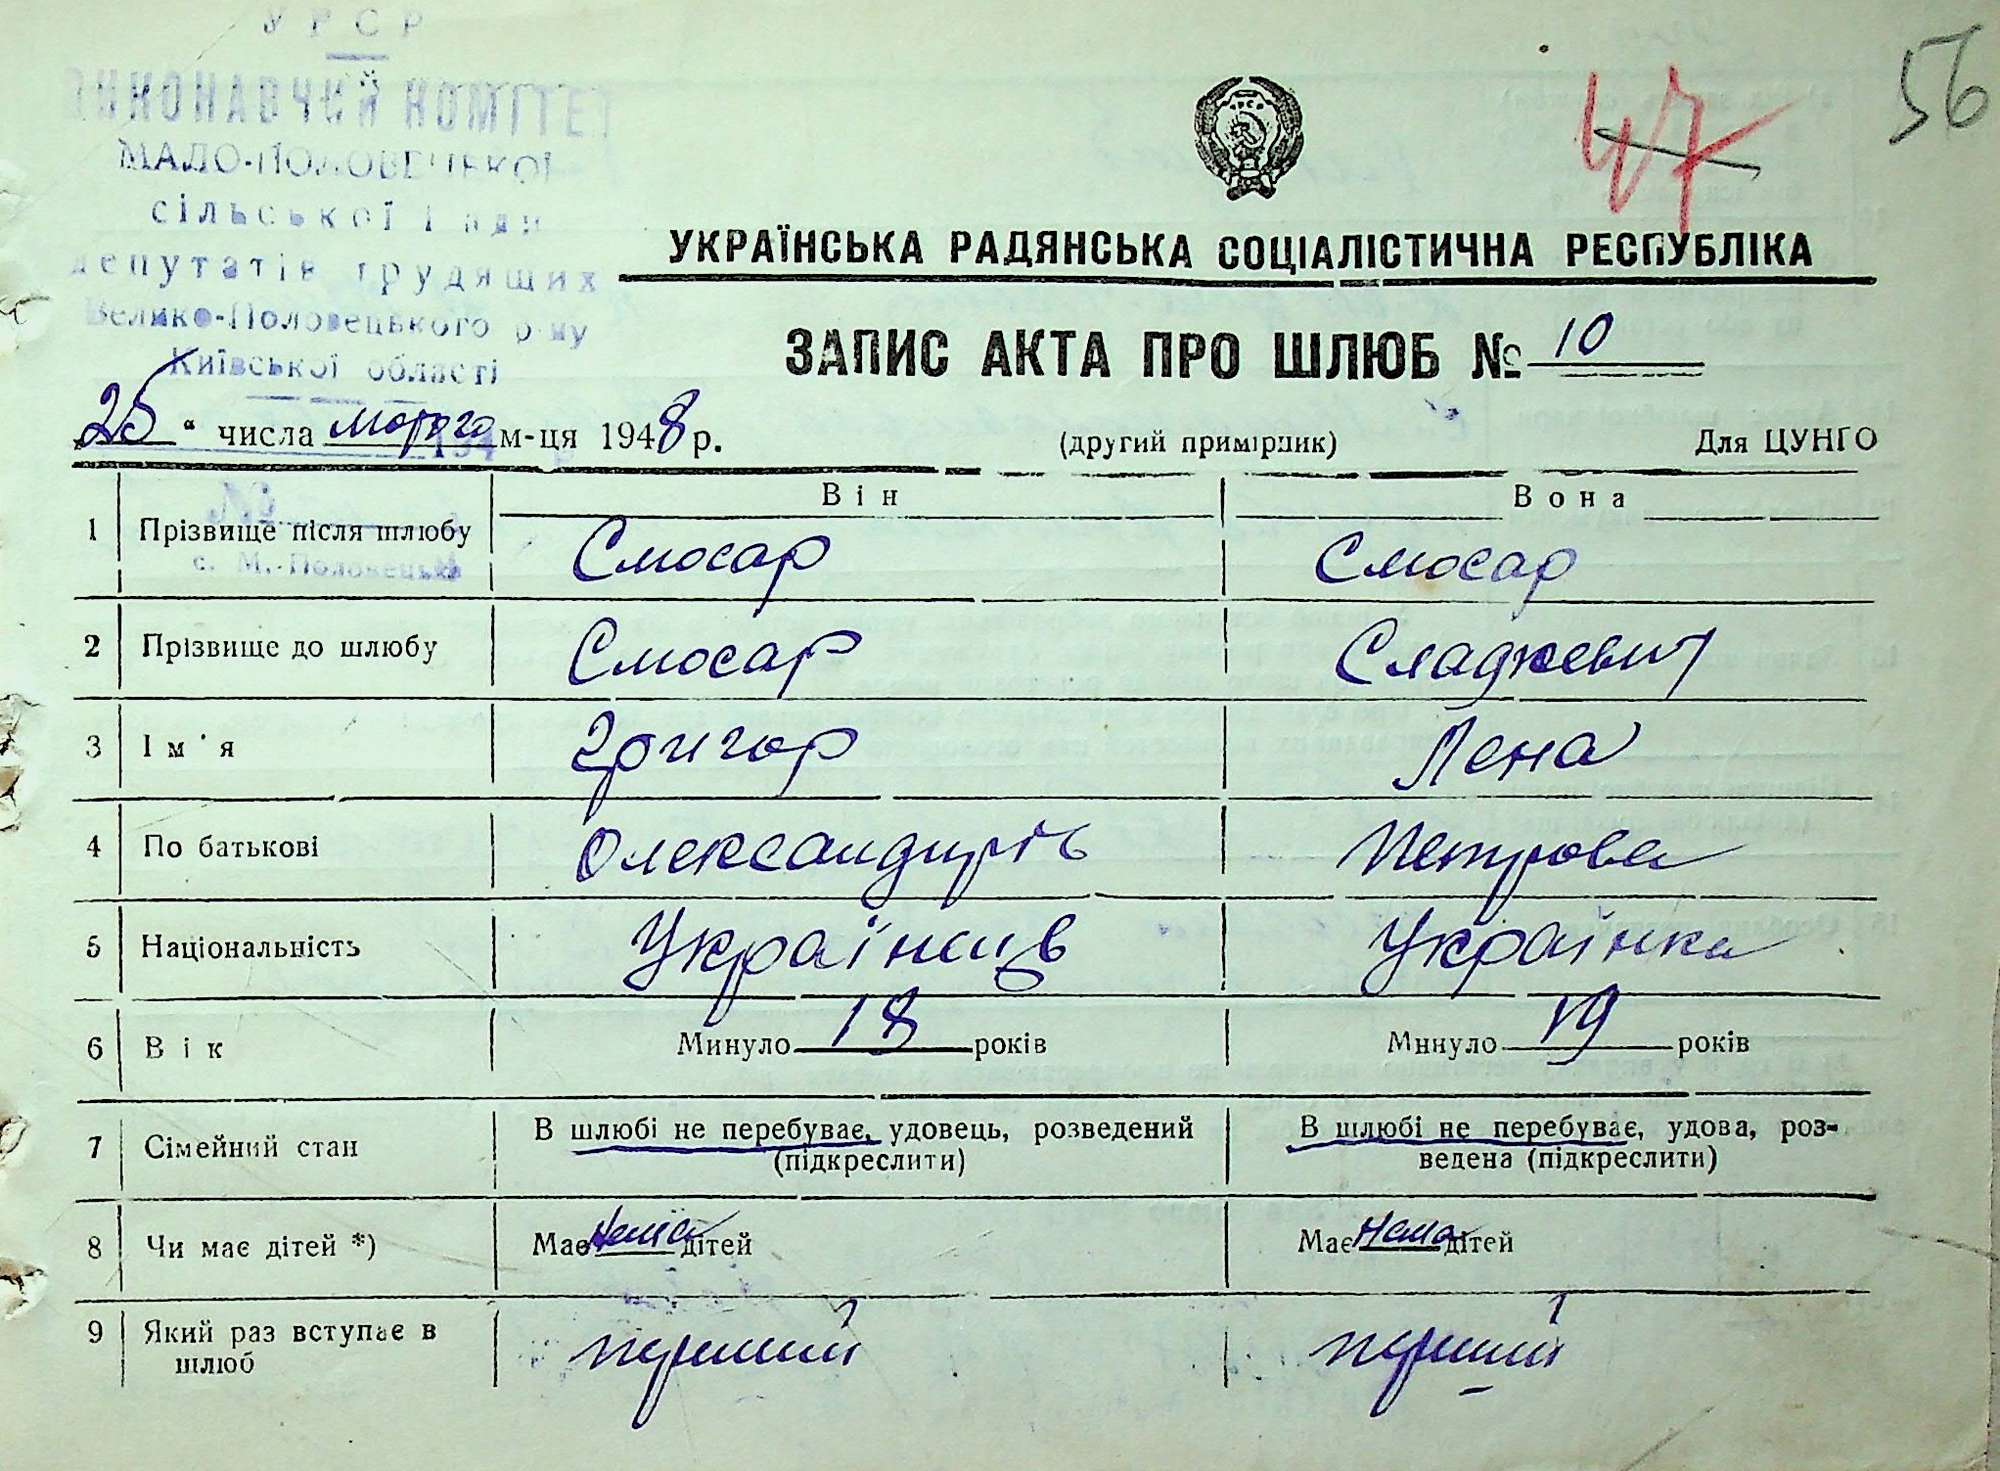 УРСР
ВИКОНАВЧИЙ КОМІТЕТ
МАЛО-ПОЛОВЕЦЬКОЇ
сільської Ради
депутатів трудящих
Велико-Половецького р-ну
Київської області
с. М.-Половецьке
47
56
УКРАЇНСЬКА РАДЯНСЬКА СОЦІАЛІСТИЧНА РЕСПУБЛІКА
ЗАПИС АКТА ПРО ШЛЮБ № 10
25 " числа лютого м-ця 1948 р. (другий примірник) Для ЦУНГО
Він Вона
1 Прізвище після шлюбу Смосар Смосар
2 Прізвище до шлюбу Смосар Сладкевич
3 Ім'я Григор Лена
4 По батькові Олександрів Петрова
5 Національність Українець Українка
6 Вік Минуло 18 років Минуло 19 років
7 Сімейний стан В шлюбі не перебуває, удовець, розведений В шлюбі не перебуває, удова, роз-
(підкреслити) ведена (підкреслити)
8 Чи має дітей *) Має Нема дітей Має Нема дітей
9 Який раз вступає в перший перший
шлюб